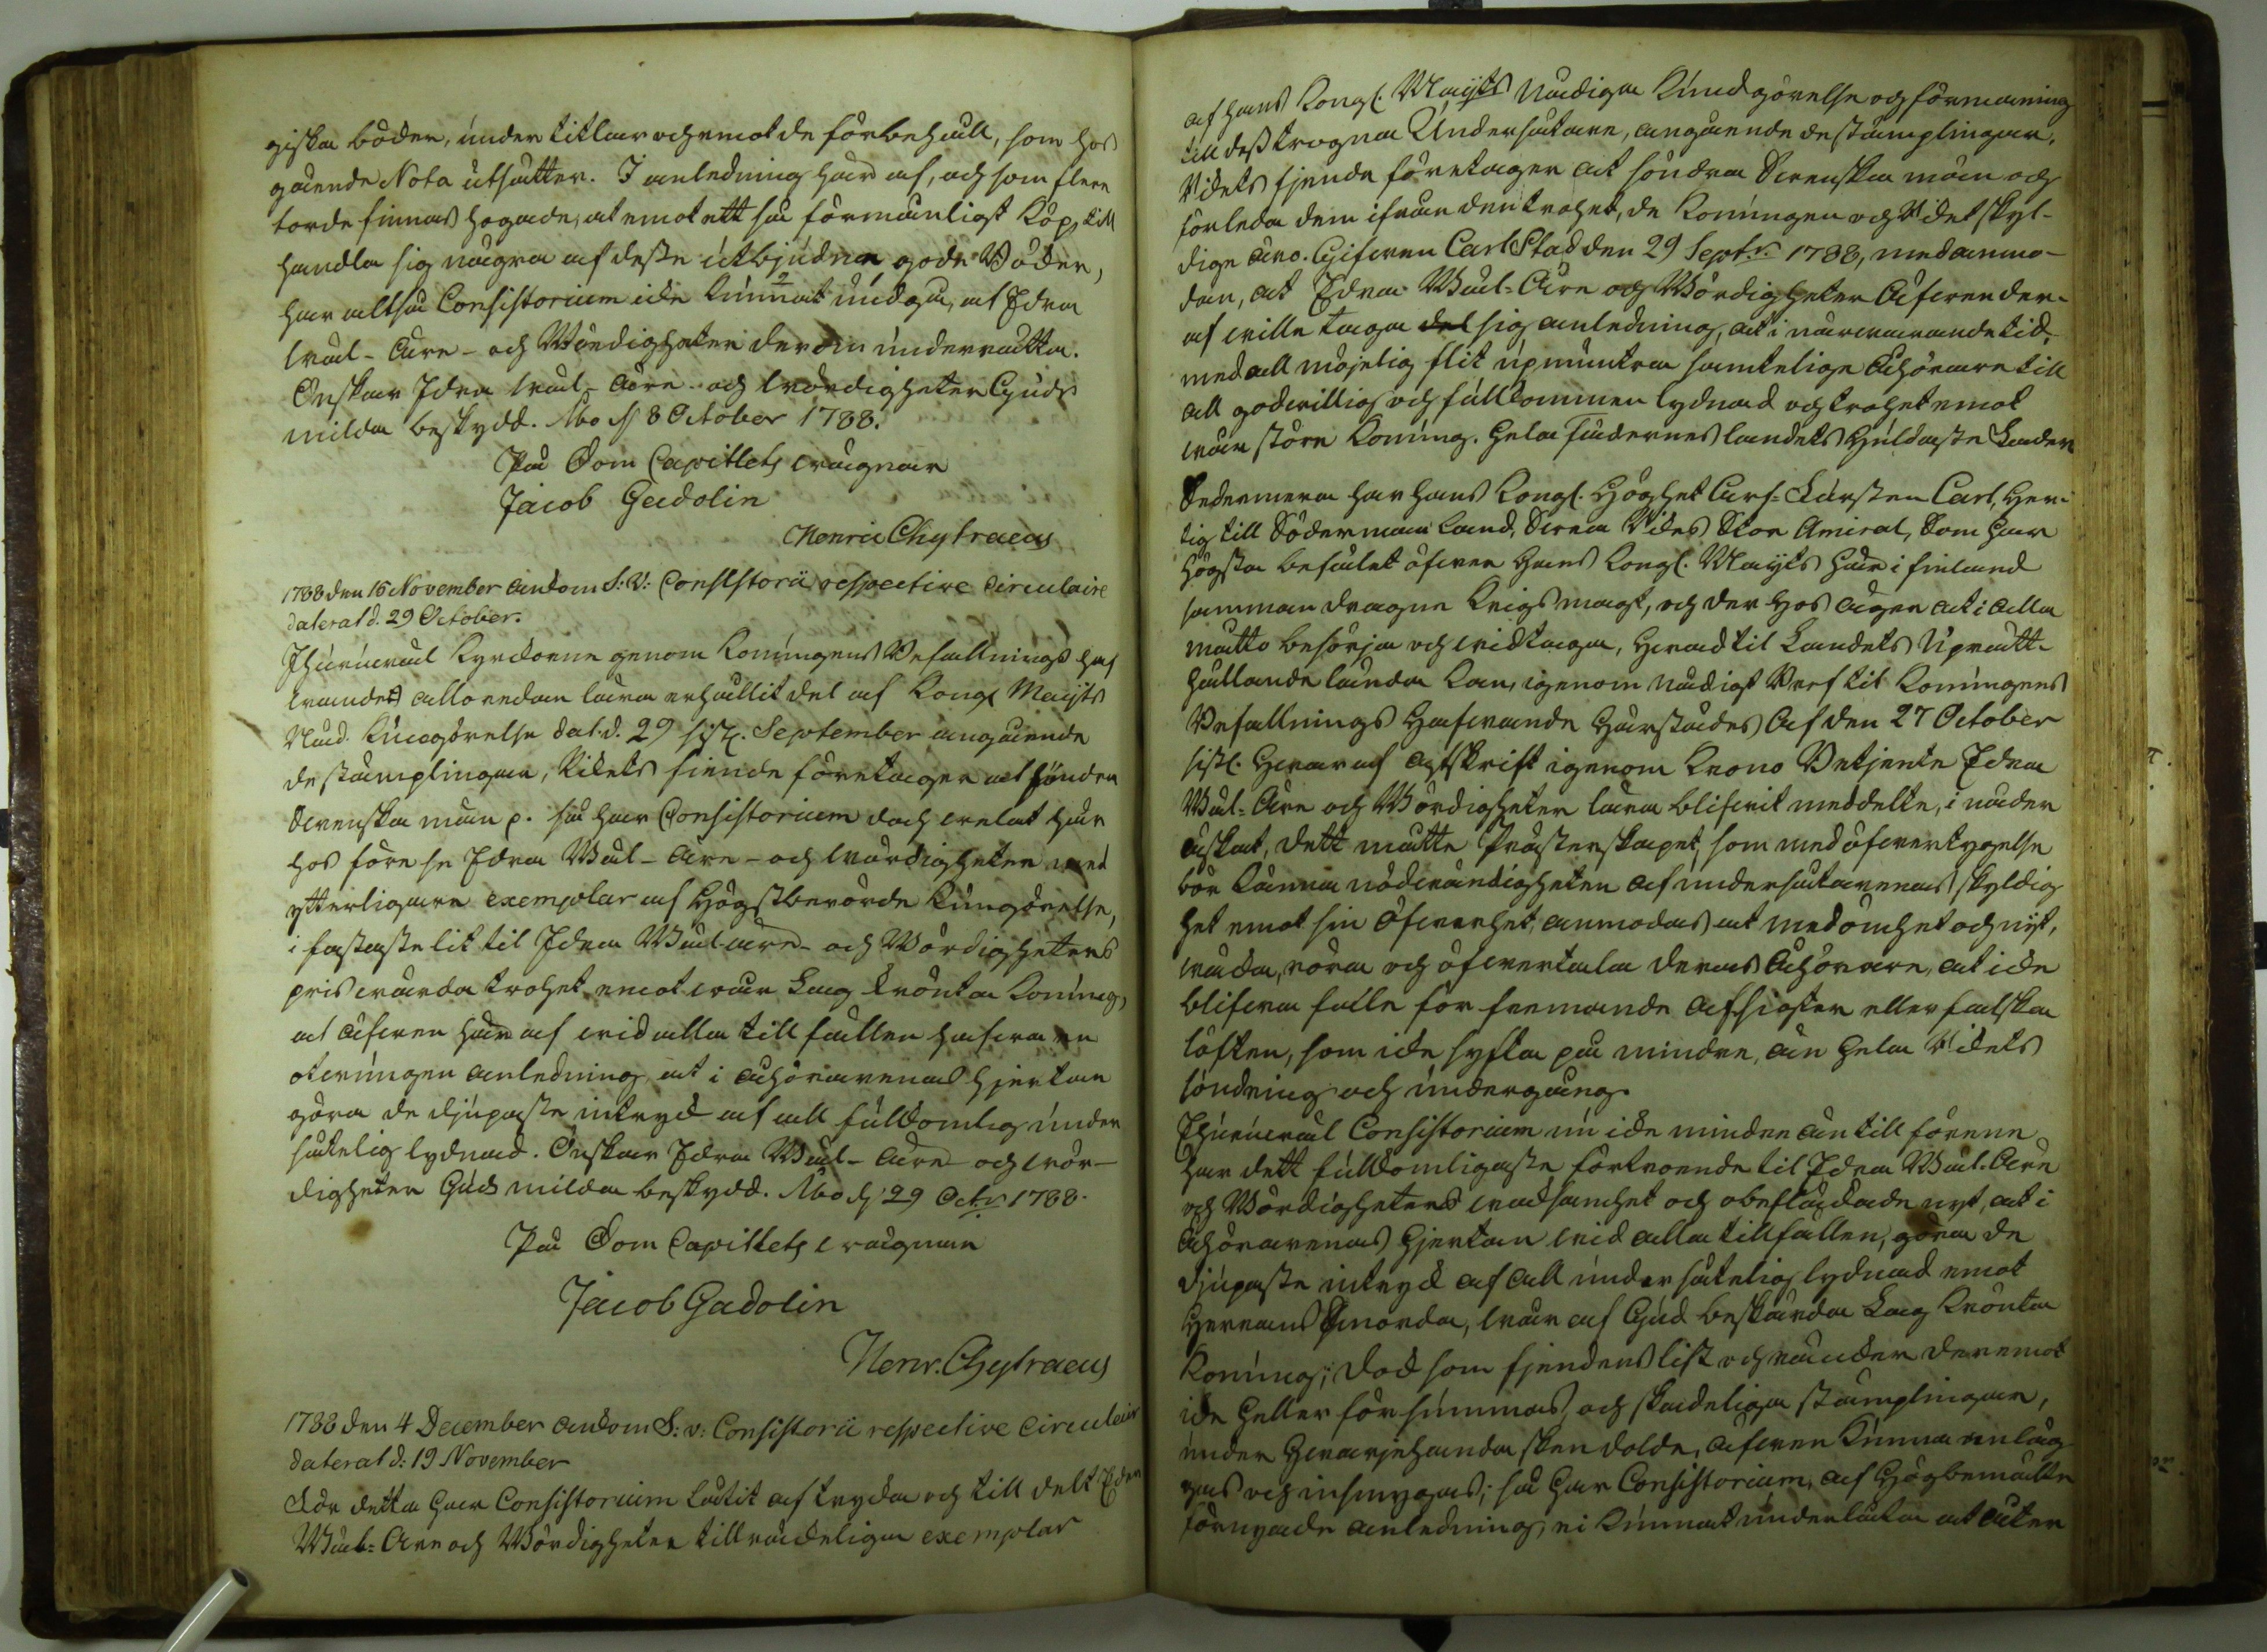 giska böcker, under titlar och emot de förbehåll, som hos
gående Nota utsätter. I anledning här af, och som flere
torde finnas hogade, at emot ett så förmånligt Köp, till
handla sig några af desse utbjudna gode Böcker,
har altså Consistorium icke kunnat undgå, at Edra
wäl-Äre- och Wördigheter derom underrätta.
Önskar Edra wäl-Äre- och wördigheter Guds
milda beskydd. Åbo d 8 October 1788.
På Dom Capitlets wägnar
Jacob Gadolin
Henric Chytraeus
1788 den 16 November ankom S: V: Consistorii respective Circulaire
daterat d. 29 October.
Ehuruwäl Kyrckorne genom Konungens Befallnings haf
wandes alloredan lära erhållit del af Kongl Mayts
Nåd. Kungörelse dat. d. 29 sistl. September angående
de stämplingar, Rikets fiende företager at söndra
Swenska män p. så har Consistorium dock welat här
hos förese Edra Wäl-Äre- och Wördigheter med
ytterligare exemplar af Högstberörde Kungörelse,
i fastaste lit til Edra Wäl-äre- och Wördigheters
priswärda trohet emot wår Lag Krönta Konung,
at äfwen här af wid alla tillfällen hafwa en
otwungen anledning at i åhörarenas hjertan
göra de djupaste intryck af all fullkomlig under
såtelig lydnad. Önskar Edra Wäl-Äre- och wör-
digheter Guds milda beskydd. Åbo d. 29 Octr 1788.
På Dom Capitlets wägnar
Jacob Gadolin
Henr. Chytraeus
1788 den 4 December ankom S: v: Consistorii respective Circulair
daterat d: 19 November
För detta har Consistorium låtit aftrycka och till delt Eder
Wäl-Äre och Wördigheter tillräckeliga exemplar
af hans Kongl. Mayts Nådiga Kundgörelse och förmaning
till dess trogna Undersåtare, angående de stämplingar,
Rikets fjende företager at söndra Swenska män och
förleda dem ifrån den trohet, de Konungen och Riket skyl-
dige äro. Gifwen Carlstad den 29 Septr. 1788, med anmo-
dan, at Edra Wäl-Äre och Wördigheter äfwen der-
af wille taga sig anledning, at i närwarande tid,
med all möjelig flit upmuntra samtelige Åhörare till
all godwillig och fullkommen lydnad och trohet emot
wår store Konung. Hela Fädernes landets Huldaste Fader
Sedermera har hans Kongl. Höghet Arf-Fursten Carl, Her-
tig till Södermanland, Swea Rikes Stor Amiral, som har
Högsta befälet öfwer Hans Kongl. Mayts här i finland
sammandragne Krigsmagt, och der hos äger at i alla
måtto besörja och widtaga, hwad til Landets Uprätt-
hållande lända kan, igenom nådigt Bref til Konungens
Befallnings Hafwande härstädes Af den 27 October
sistl. Hwaraf afskrift igenom Krono Betjente Edra
Wäl-Äre och Wördigheter lära blifwit meddelte, i nåder
äskat, dett måtte Prästerskapet, som med öfwertygelse
bör känna nödwändigheten af undersåtarenas skyldig
het emot sin Öfwerhet, anmodas at med ömhet och nit,
wäcka, röra och öfwertala deras Åhörare, at icke
blifwa falle för fremande afsigter eller falska
löften, som icke syfta på mindre, än hela Rikets
söndring och undergång.
Ehuruwäl Consistorium nu icke mindre än till förene
har dett fullkomligaste förtroende til Edra Wäl-Äre
och Wördigheters wacksamhet och obefläckade nit, at i
Åhörarenas Hjertan wid alla tillfällen, göra de
djupaste intryck af all undersåtelig lydnad emot
Herrans Smorda, wår af Gud beskärda Lag Krönta
Konung; Dock som fjendens list och ränker deremot
icke heller försummas, och skadeliga stämplingar,
under hwarjehanda sken dolde, äfwen kunna anläg
gas och insmygas; så har Consistorium, af Högbemälte
förnyade anledning, ei kunnat underlåta at åter